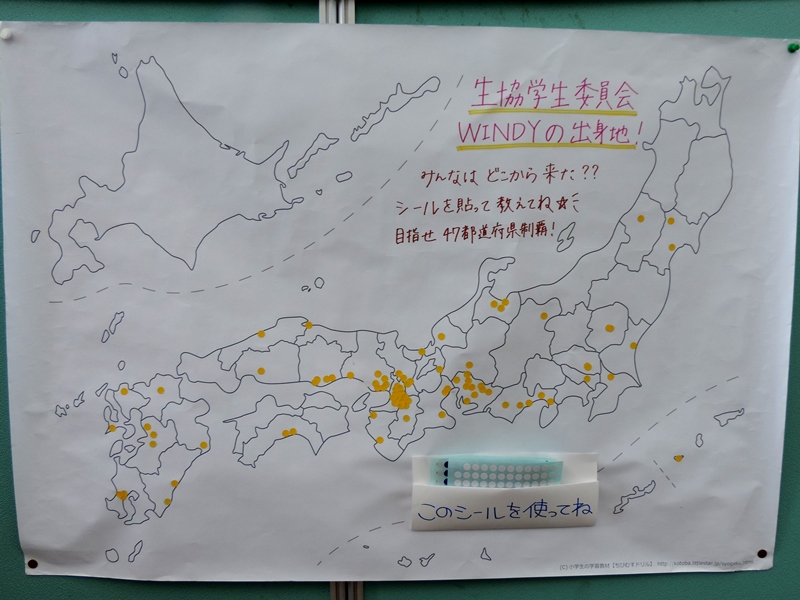 生協学生委員会
WINDYの出身地!
みんなは どこから 来た??
シールを貼って 教えてね☆
目指せ 47都道府県制覇!
このシールを使ってね
(C) 小学生の学習教材【ちびむすドリル】